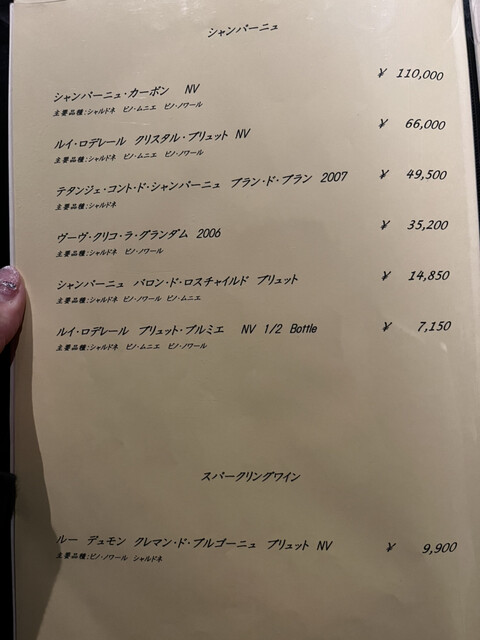 シャンパーニュ
シャンパーニュ・カーボン　NV　¥ 110,000
主要品種：シャルドネ　ピノ・ムニエ　ピノ・ノワール
ルイ・ロデレール　クリスタル・ブリュット　NV　¥ 66,000
主要品種：シャルドネ　ピノ・ムニエ　ピノ・ノワール
テタンジェ・コント・ド・シャンパーニュ　ブラン・ド・ブラン　2007　¥ 49,500
主要品種：シャルドネ
ヴーヴ・クリコ・ラ・グランダム　2006　¥ 35,200
主要品種：シャルドネ　ピノ・ノワール
シャンパーニュ　バロン・ド・ロスチャイルド　ブリュット　¥ 14,850
主要品種：シャルドネ　ピノ・ノワール　ピノ・ムニエ
ルイ・ロデレール　ブリュット・プルミエ　NV 1/2 Bottle　¥ 7,150
主要品種：シャルドネ　ピノ・ムニエ　ピノ・ノワール
スパークリングワイン
ルー　デュモン　クレマン・ド・ブルゴーニュ　ブリュット　NV　¥ 9,900
主要品種：ピノ・ノワール　シャルドネ